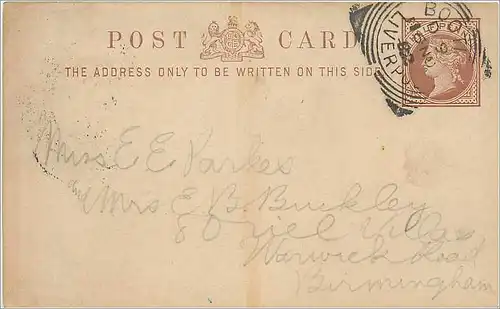 POST CARD
THE ADDRESS ONLY TO BE WRITTEN ON THIS SIDE
Miss E E Parkes
Mrs E. B. Buckley
8 Oriel Villas
Warwick Road
Birmingham